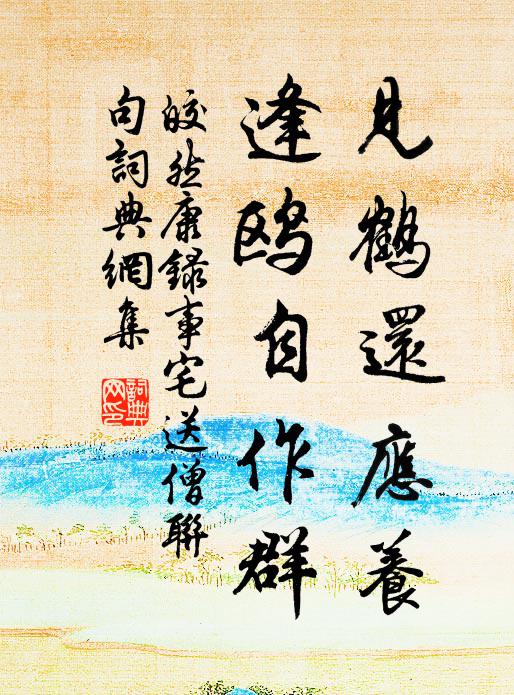 見鶴還應養
逢鷗自作群
皎然康錄事宅送僧聯
句詞典網集
詞典网印